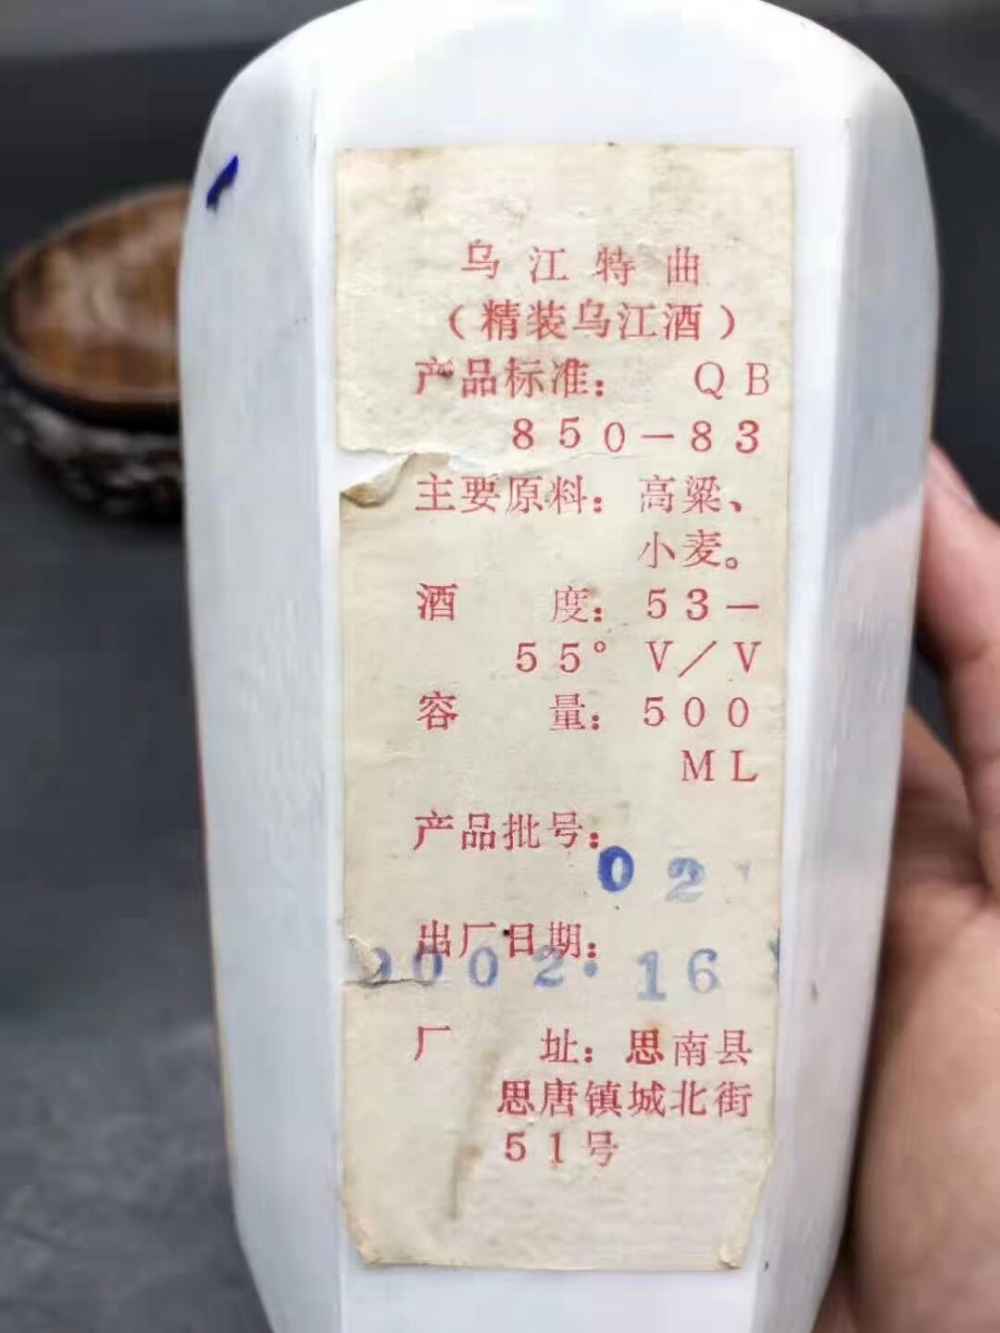 乌江特曲
（精装乌江酒）
产品标准： QB
850－83
主要原料：高粱、
小麦。
酒 度：53－
55° V／V
容 量：500
ML
产品批号：
02
出厂日期：
9002·16
厂 址：思南县
思唐镇城北街
51号